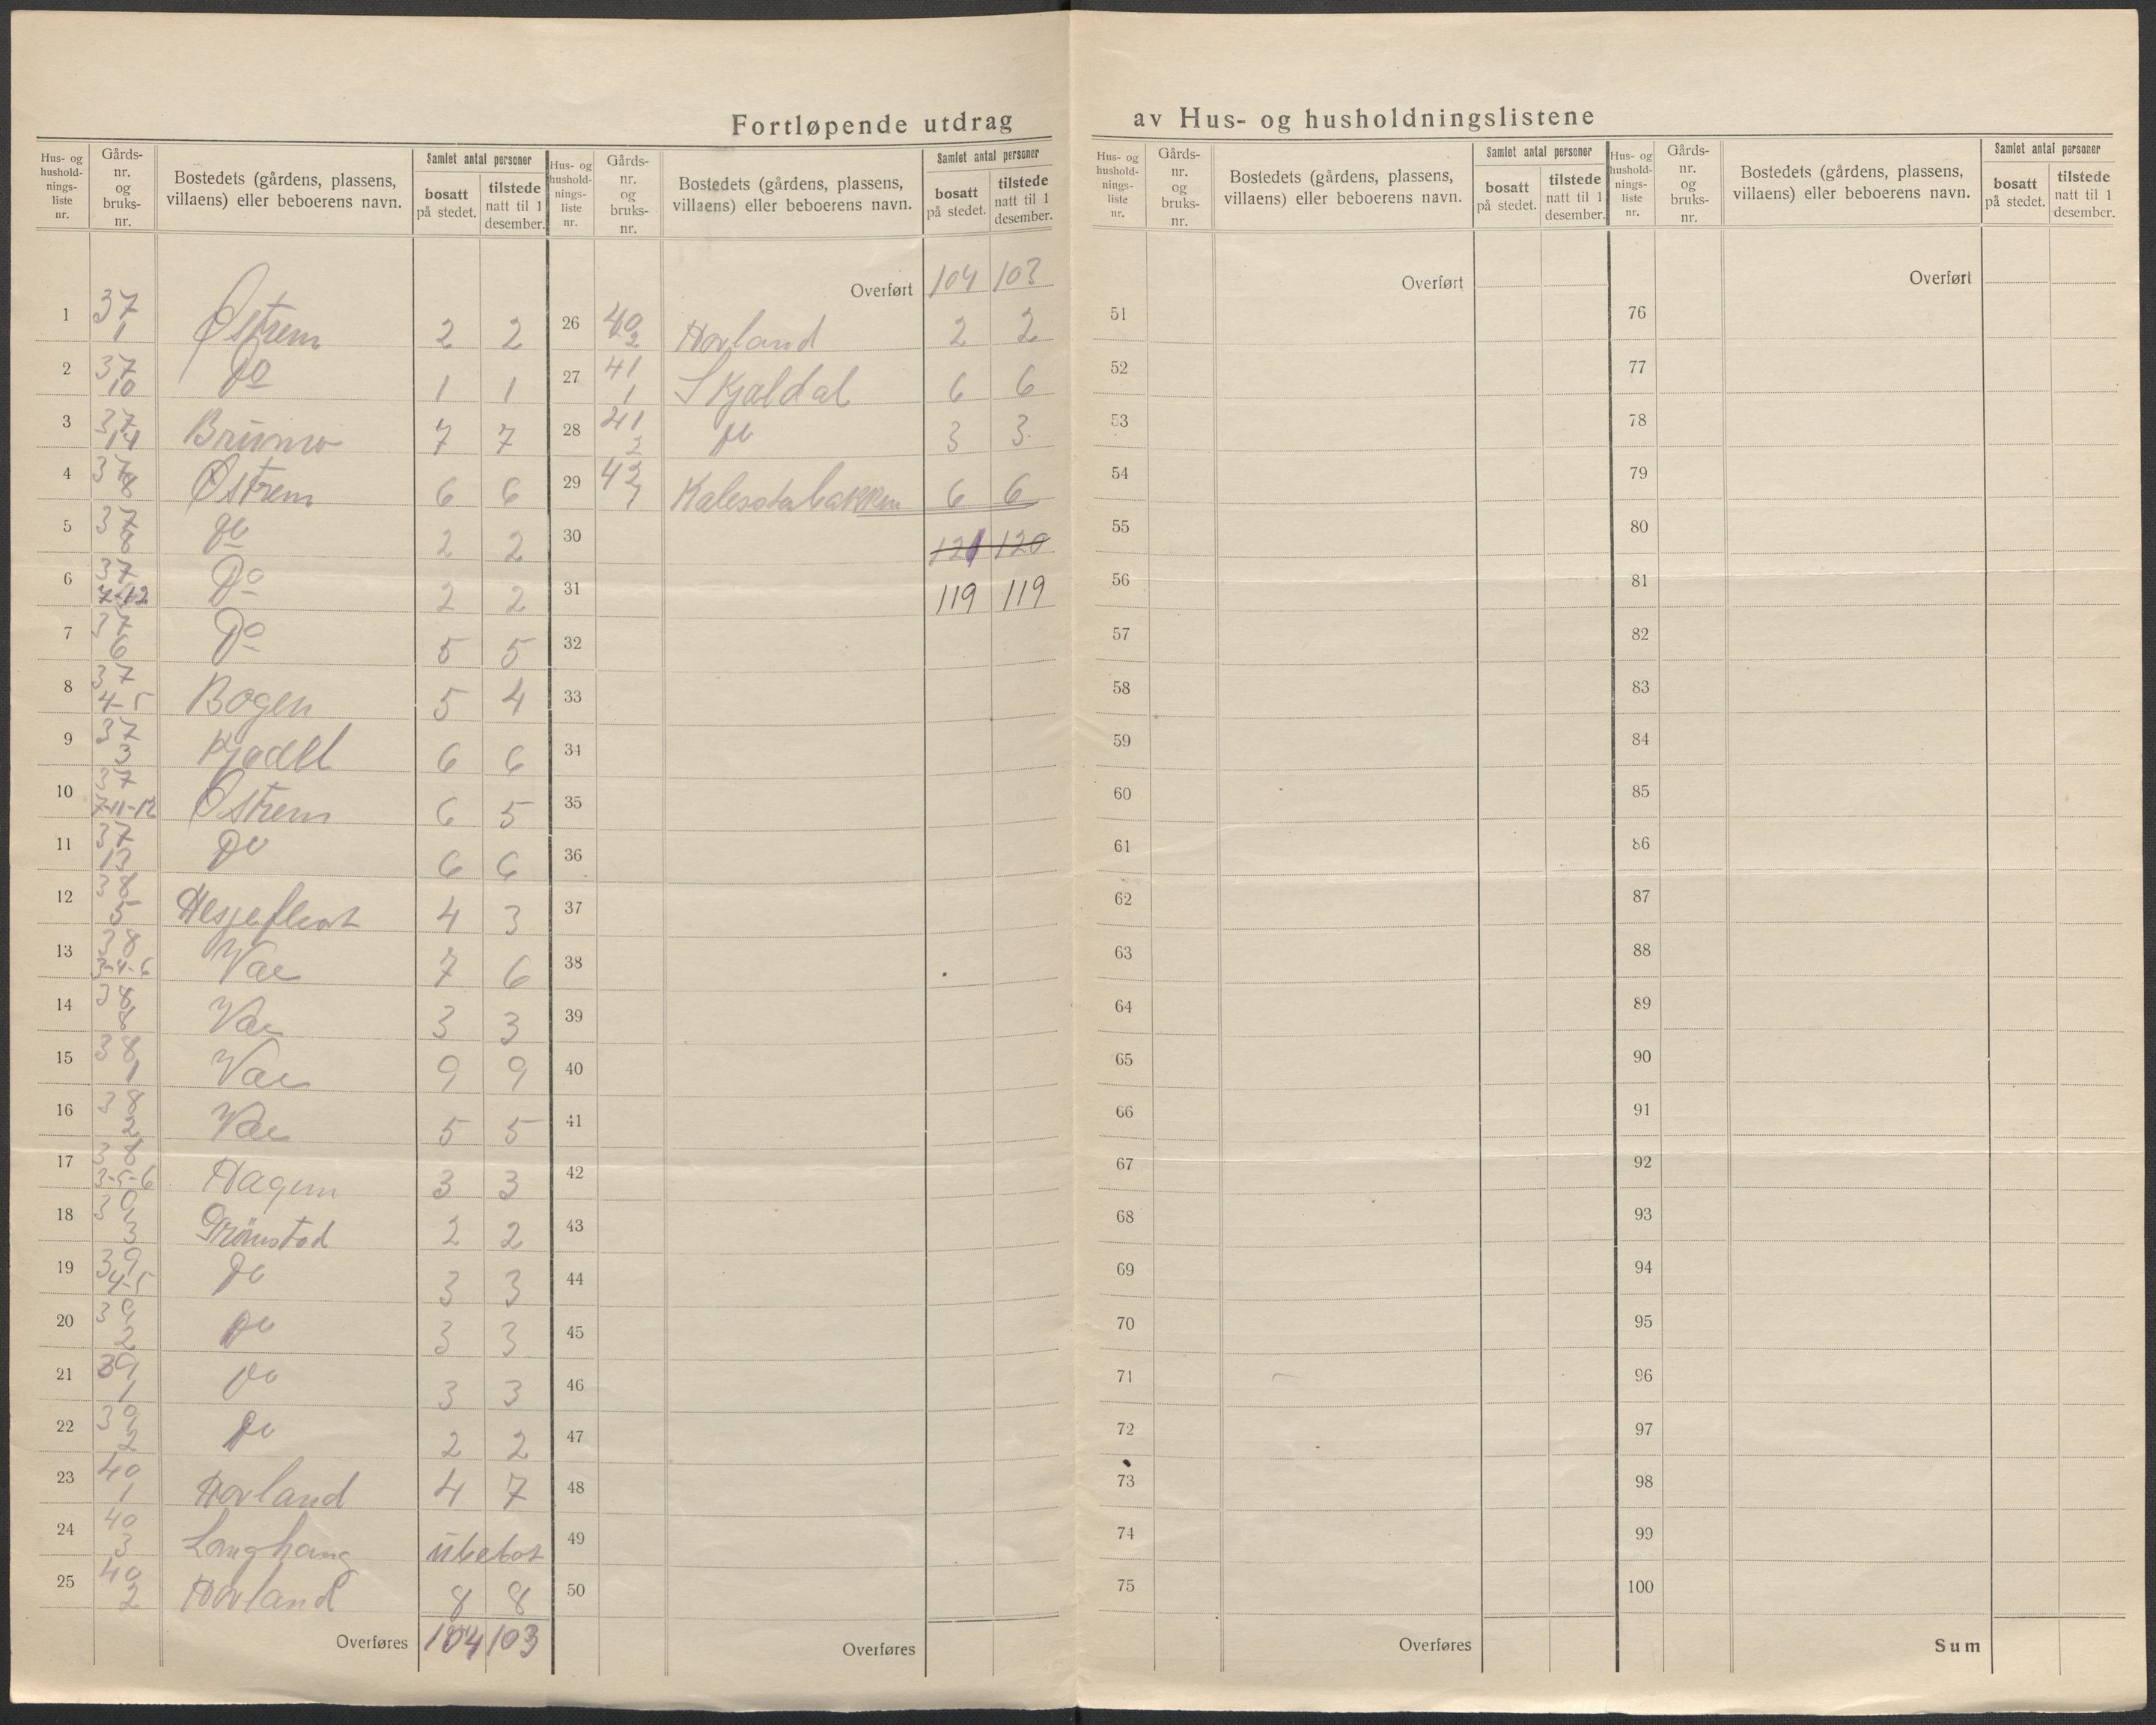 Fortløpende utdrag av Hus- og husholdningslistene
Hus- og hushold- nings- liste nr. | Gårds- nr. og bruks- nr. | Bostedets (gårdens, plassens, villaens) eller beboerens navn. | Samlet antal personer | bosatt på stedet. | tilstede natt til 1 desember.
1 37 1 Østrem 2 2
2 37 10 Do 1 1
3 37 14 7 7
4 37 8 Østrem 6 6
5 37 8 Do 2 2
6 37 7-12 Do 2 2
7 37 6 Do 5 5
8 37 4-5 Bogen 5 4
9 37 3 6 6
10 37 7-11-12 Østrem 6 5
11 37 13 Do 6 6
12 38 5 Hesjeflaat 4 3
13 38 3-4-6 Vae 7 6
14 38 8 Vae 3 3
15 38 1 Vae 9 9
16 38 2 Vae 5 5
17 38 3-5-6 Hagen 3 3
18 39 3 Grönstad 2 2
19 39 4-5 Do 3 3
20 39 2 Do 3 3
21 39 1 Do 3 3
22 39 2 Do 2 2
23 40 1 Hovland 4 7
24 40 3 Langhaug ubebot
25 40 2 Hovland 8 8
Overføres 104 103
Hus- og hushold- nings- liste nr. | Gårds- nr. og bruks- nr. | Bostedets (gårdens, plassens, villaens) eller beboerens navn. | Samlet antal personer | bosatt på stedet. | tilstede natt til 1 desember.
Overført 104 103
26 40 2 Hovland 2 2
27 41 1 Skjaldal 6 6
28 41 2 Do 3 3
29 42 1 6 6
30 121 120
31 119 119
32
33
34
35
36
37
38
39
40
41
42
43
44
45
46
47
48
49
50
Overføres
Hus- og hushold- nings- liste nr. | Gårds- nr. og bruks- nr. | Bostedets (gårdens, plassens, villaens) eller beboerens navn. | Samlet antal personer | bosatt på stedet. | tilstede natt til 1 desember.
Overført
51
52
53
54
55
56
57
58
59
60
61
62
63
64
65
66
67
68
69
70
71
72
73
74
75
Overføres
Hus- og hushold- nings- liste nr. | Gårds- nr. og bruks- nr. | Bostedets (gårdens, plassens, villaens) eller beboerens navn. | Samlet antal personer | bosatt på stedet. | tilstede natt til 1 desember.
Overført
76
77
78
79
80
81
82
83
84
85
86
87
88
89
90
91
92
93
94
95
96
97
98
99
100
Sum